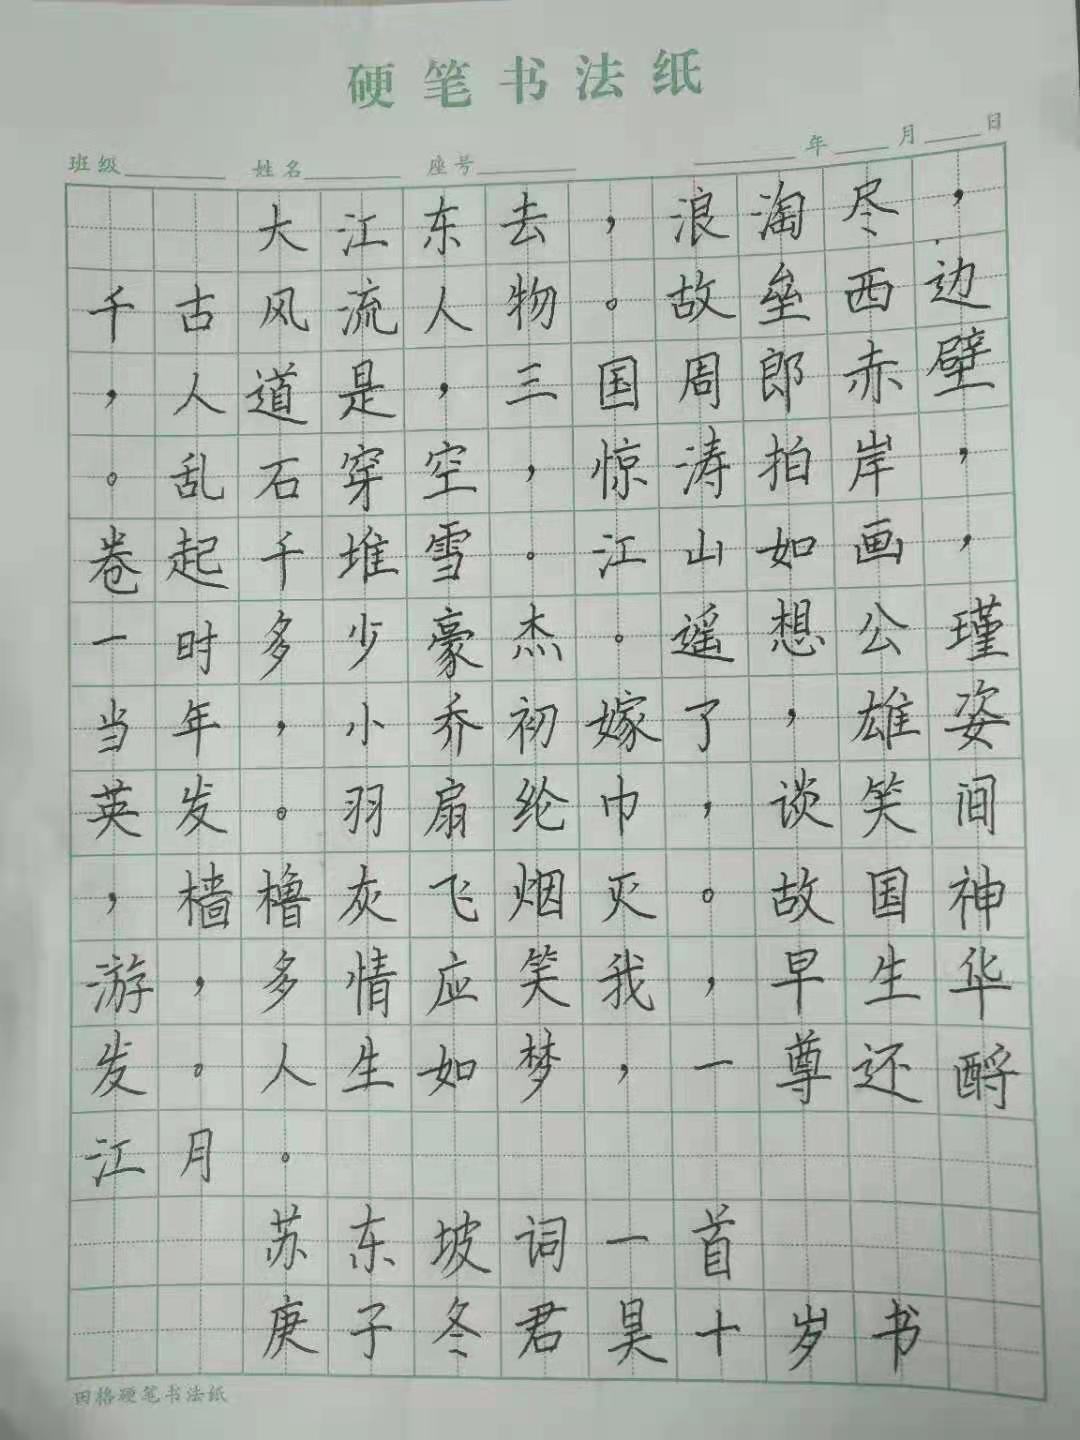 硬笔书法纸
班级 姓名 座号 年 月 日
大江东去，浪淘尽，
千古风流人物。故垒西边
，人道是，三国周郎赤壁
。乱石穿空，惊涛拍岸，
卷起千堆雪。江山如画，
一时多少豪杰。遥想公瑾
当年，小乔初嫁了，雄姿
英发。羽扇纶巾，谈笑间
，樯橹灰飞烟灭。故国神
游，多情应笑我，早生华
发。人生如梦，一尊还酹
江月。
苏东坡词一首
庚子冬君昊十岁书
田格硬笔书法纸